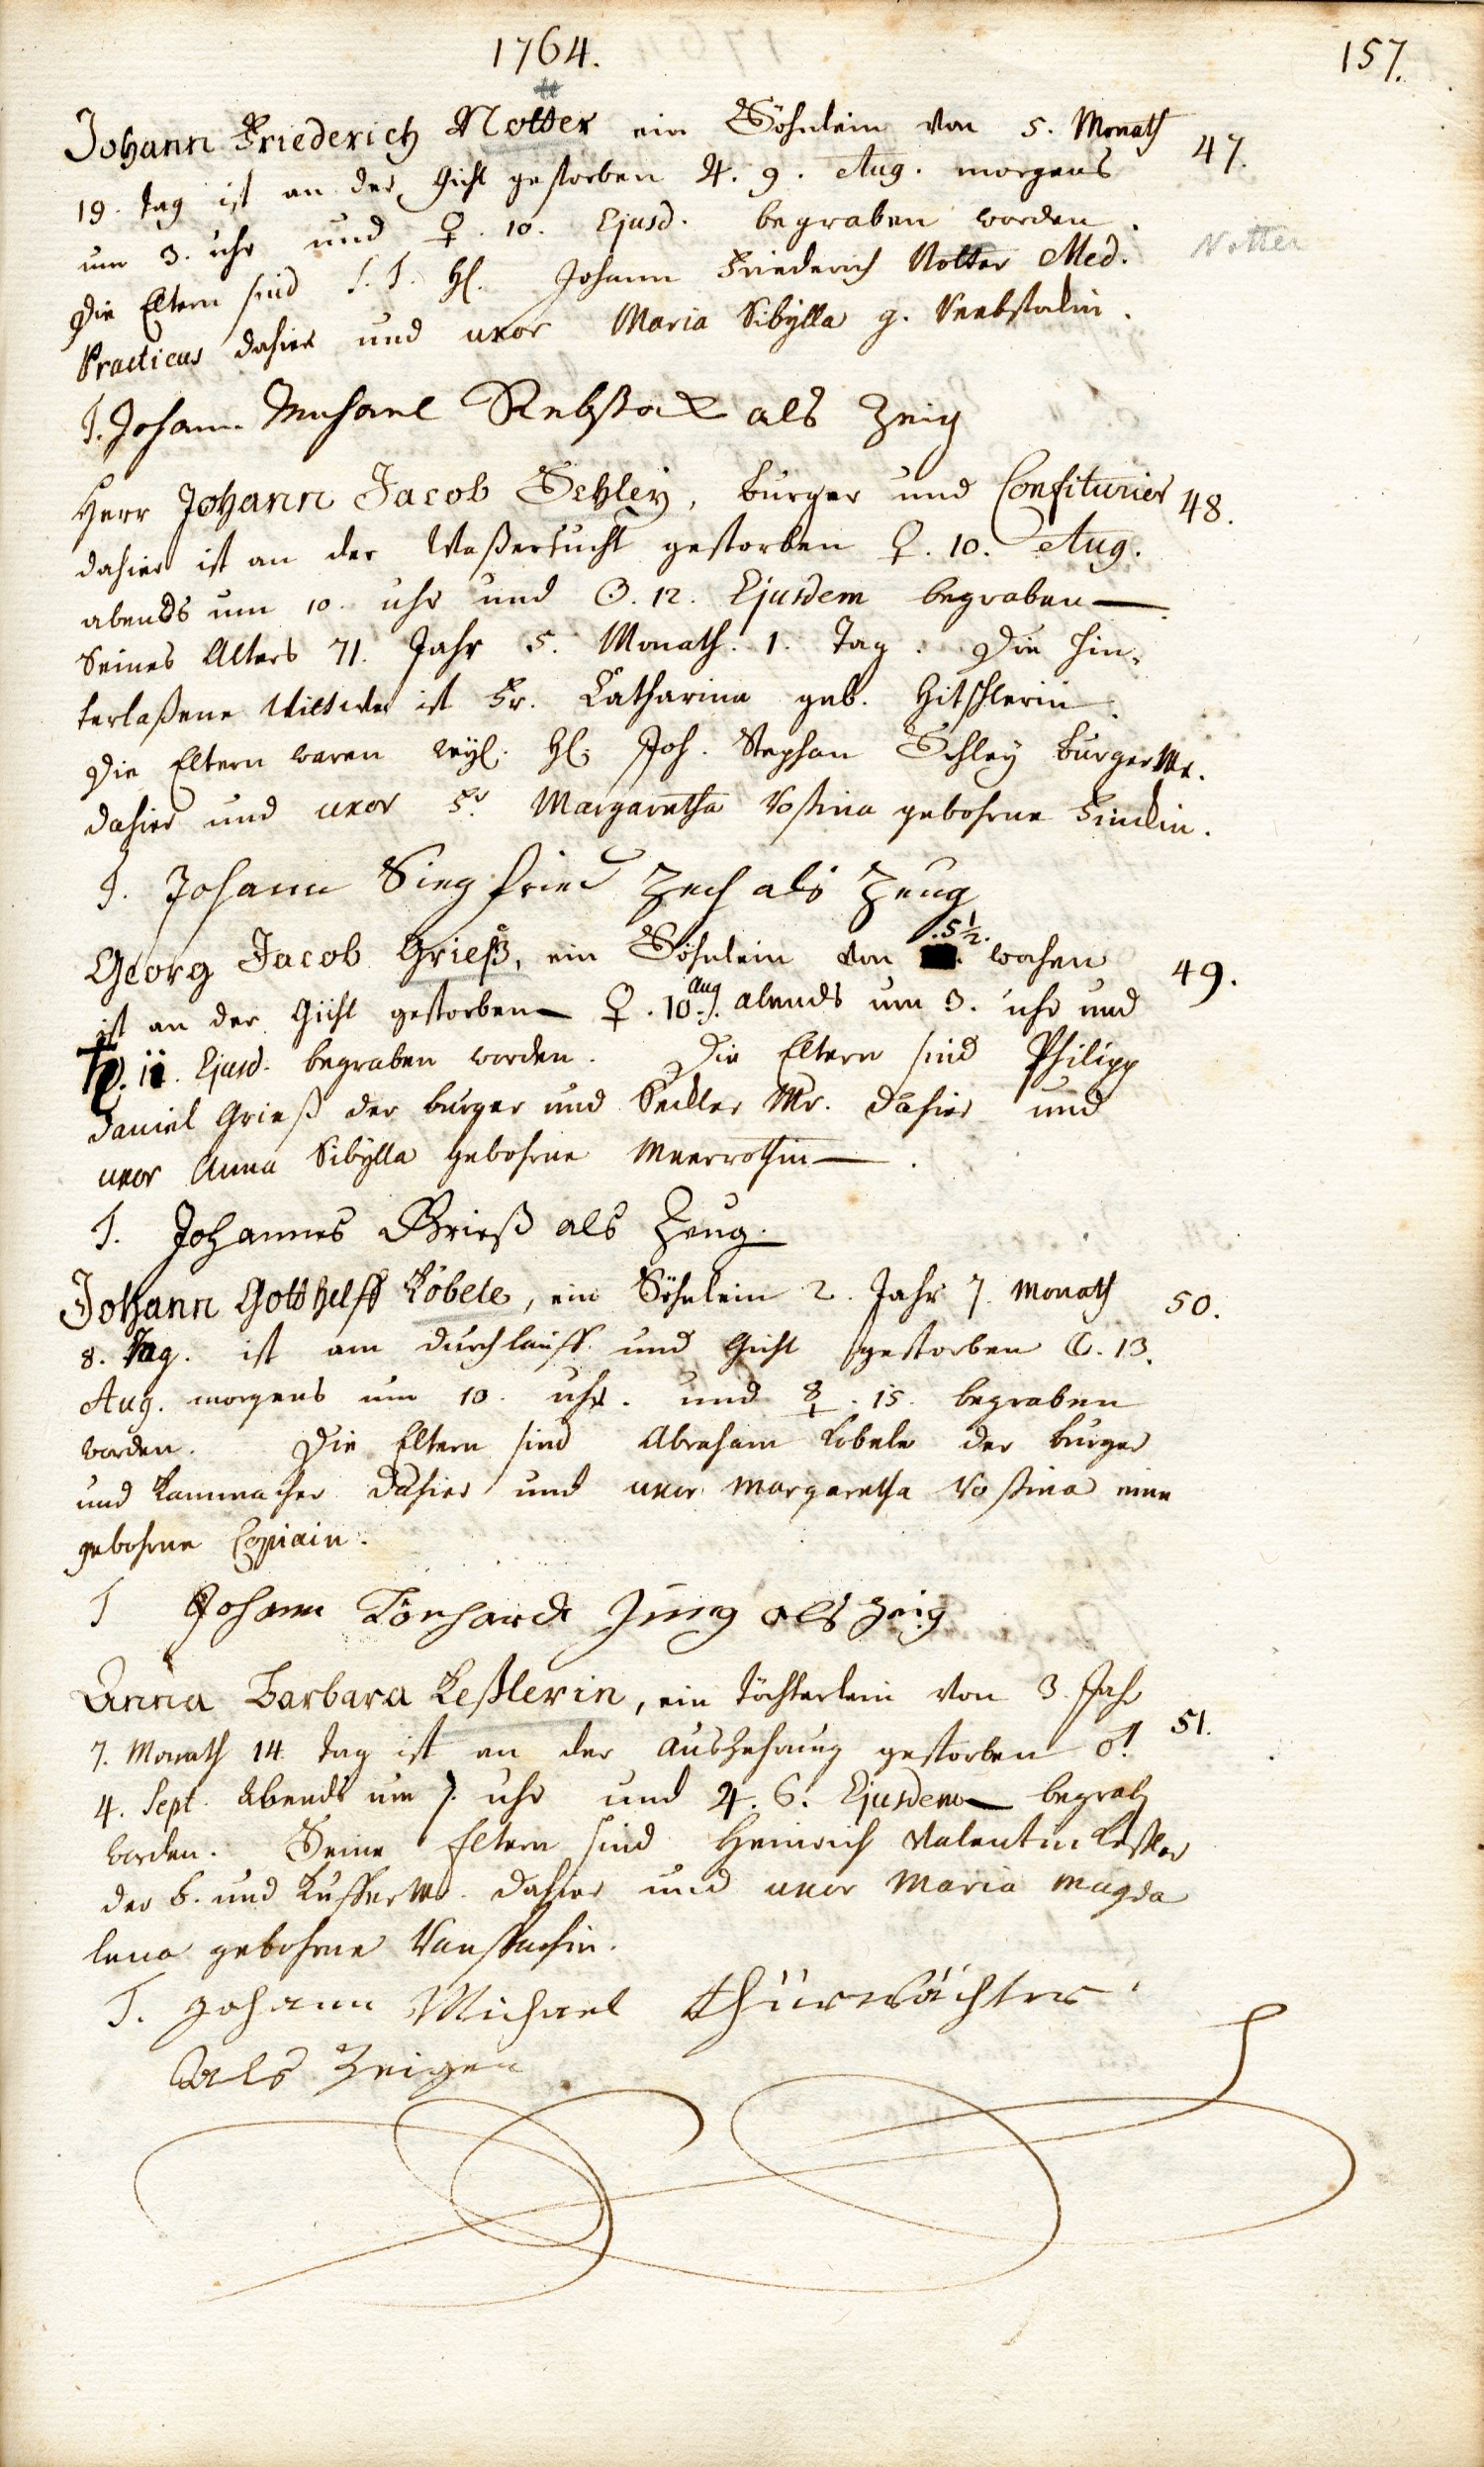 1764.
157.
Johann Friederich Notter ein Söhnlein von 5. Monath
47.
19. tag ist an der Gicht gestorben ♃. 9. Aug. morgens
um 3. uhr und ♀. 10. Ejusd. begraben worden.
Notter
Die Eltern sind S. T. H. Johann Friederich Notter Med.
Practicus dahier und uxor Maria Sibylla g.
T. Johann Michael Rebstock als Zeig
Herr Johann Jacob Schley, burger und Confiturier
48.
dahier ist an der Waßersucht gestorben ♀. 10. Aug.
abends um 10. uhr und ☉. 12. Ejusdem begraben
Seines Alters 71. Jahr 5. Monath. 1. Tag. Die hin-
terlaßene Wittwe ist Fr. Catharina geb. Hitschlerin.
Die Eltern waren weyl. H. Joh. Stephan Schley burger Mr.
dahier und uxor Fr. Margaretha gebohrne Finckin.
T. Johann Siegfried Zech als Zeug
Georg Jacob Grieß, ein Söhnlein von .5½. wochen
49.
ist an der Gicht gestorben ♀. 10. Aug. abends um 3. uhr und
♄. 11. Ejusd. begraben worden. Die Eltern sind Philipp
Daniel Grieß der burger und Seckler Mr. dahier und
uxor Anna Sibylla gebohrne Meerrothin.
T. Johannes Grieß als Zeug.
Johann Gotthelff Köbele, ein Söhnlein 2. Jahr 7. Monath
50.
8. Tag. ist am durchlauff und Gicht gestorben ☾. 13.
Aug. morgens um 10. uhr. und ☿. 15. begraben
worden. Die Eltern sind Abraham Köbele der burger
und Kammacher dahier und uxor Margaretha eine
gebohrne
T Johann Lönhardt Jung als Zeig
Anna Barbara Keßlerin, ein Töchterlein von 3. Jahr
51.
7. Monath 14. tag ist an der Auszehrung gestorben ♂.
4. Sept. Abends um 7. uhr und ♃. 6. Ejusdem begrab
worden. Seine Eltern sind Heinrich Valentin Keßler
der b. und Küffer Mr. dahier und uxor Maria Magda
lena gebohrne
T. Johann Michael Thürwächter
Als Zeigen